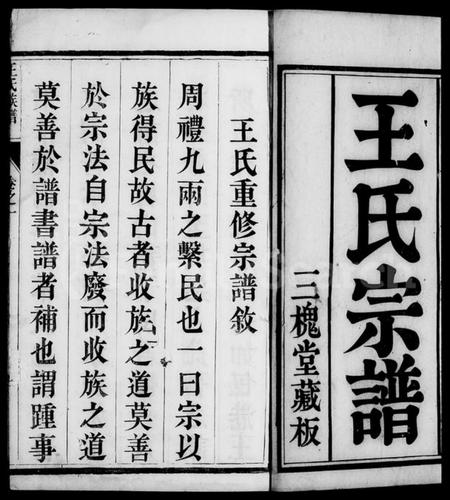 王氏宗譜
三槐堂藏板
王氏重修宗譜敘
周禮九兩之繫民也一曰宗以
族得民故古者收族之道莫善
於宗法自宗法廢而收族之道
莫善於譜書譜者補也謂踵事
王氏族譜
卷之一